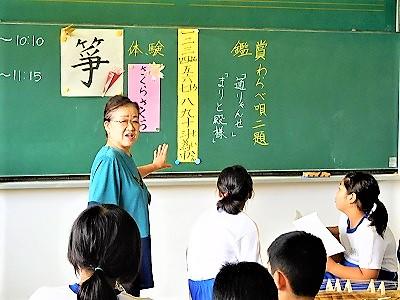 ~10:10
~11:15
箏
体験
さくらさくら
一二三四五六七八九十斗為巾
鑑賞 わらべ唄二題
「通りゃんせ」
「まりと殿様」